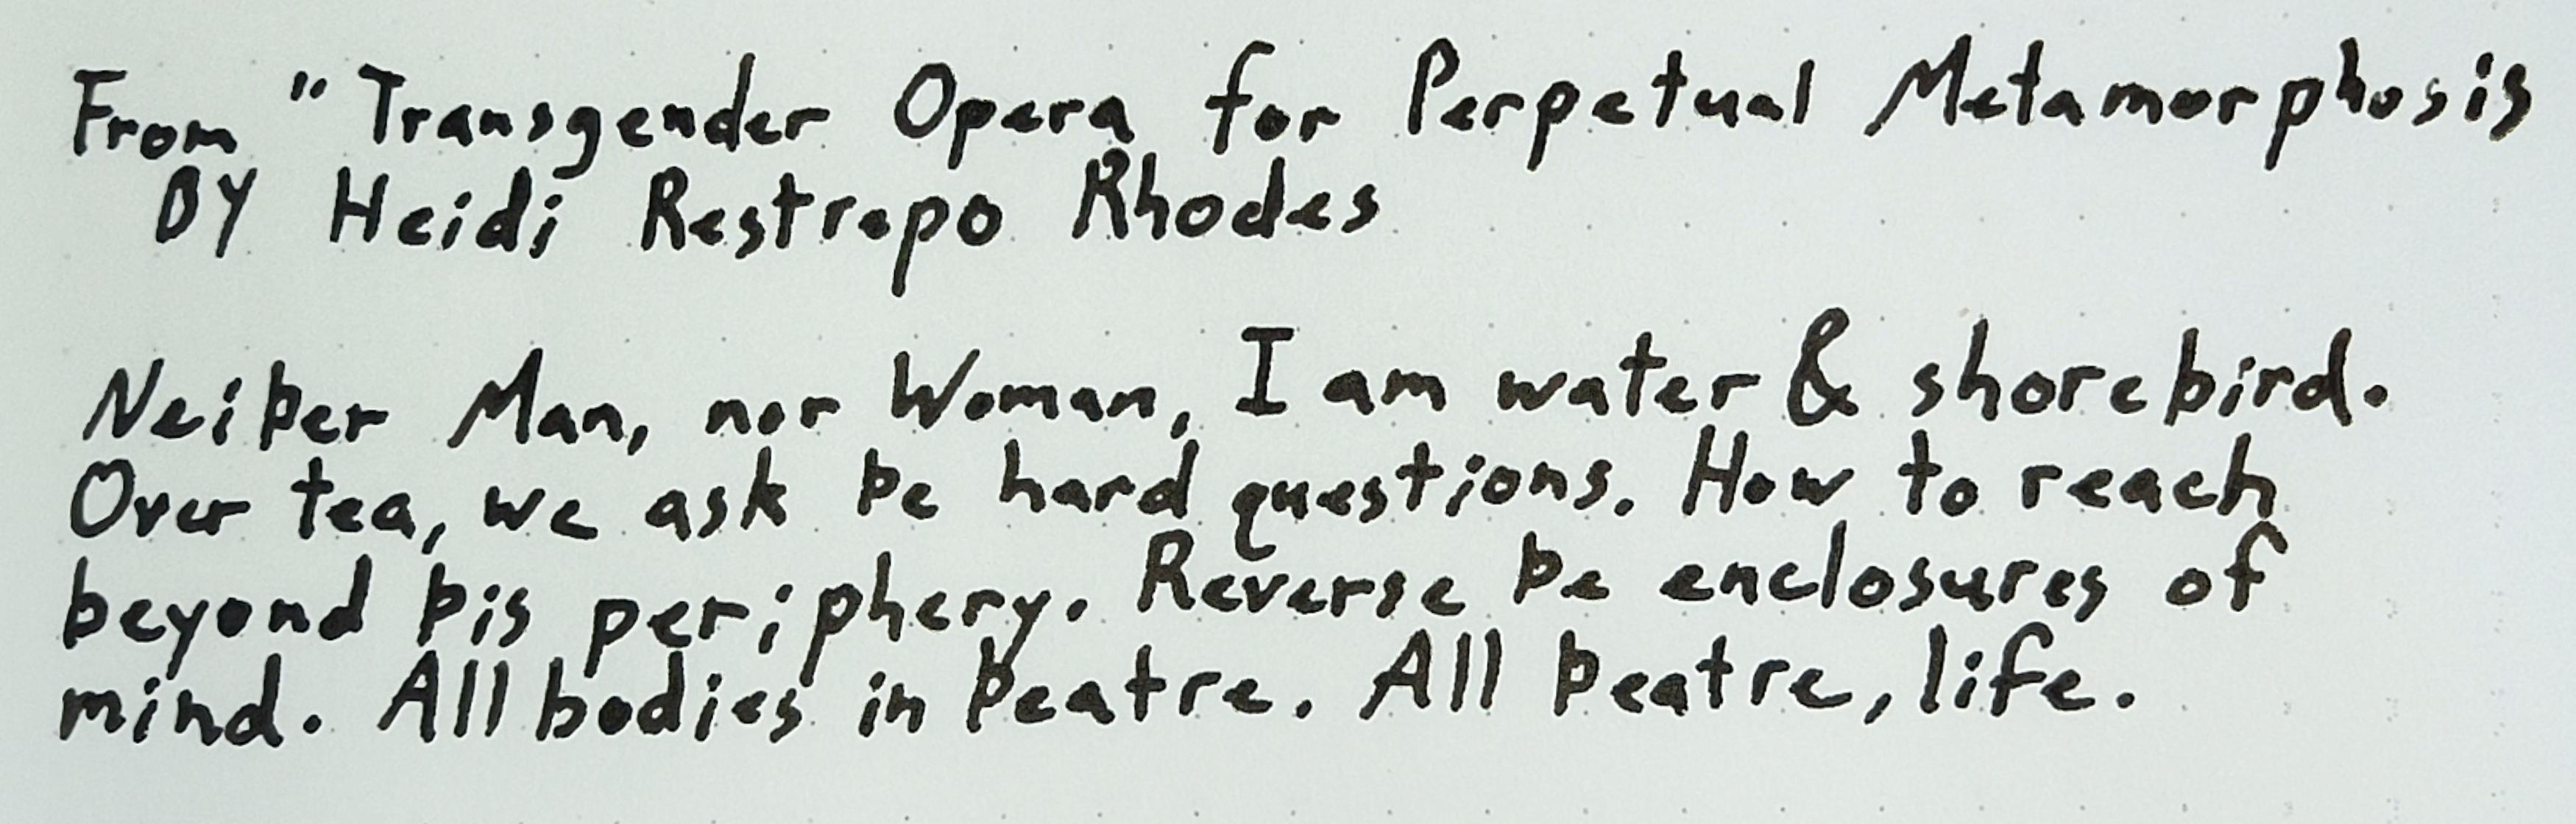 From "Transgender Opera for Perpetual Metamorphosis
By Heidi Restrepo Rhodes
Neiþer Man, nor Woman, I am water & shorebird.
Over tea, we ask þe hard questions. How to reach
beyond þis periphery. Reverse þe enclosures of
mind. All bodies in þeatre. All þeatre, life.